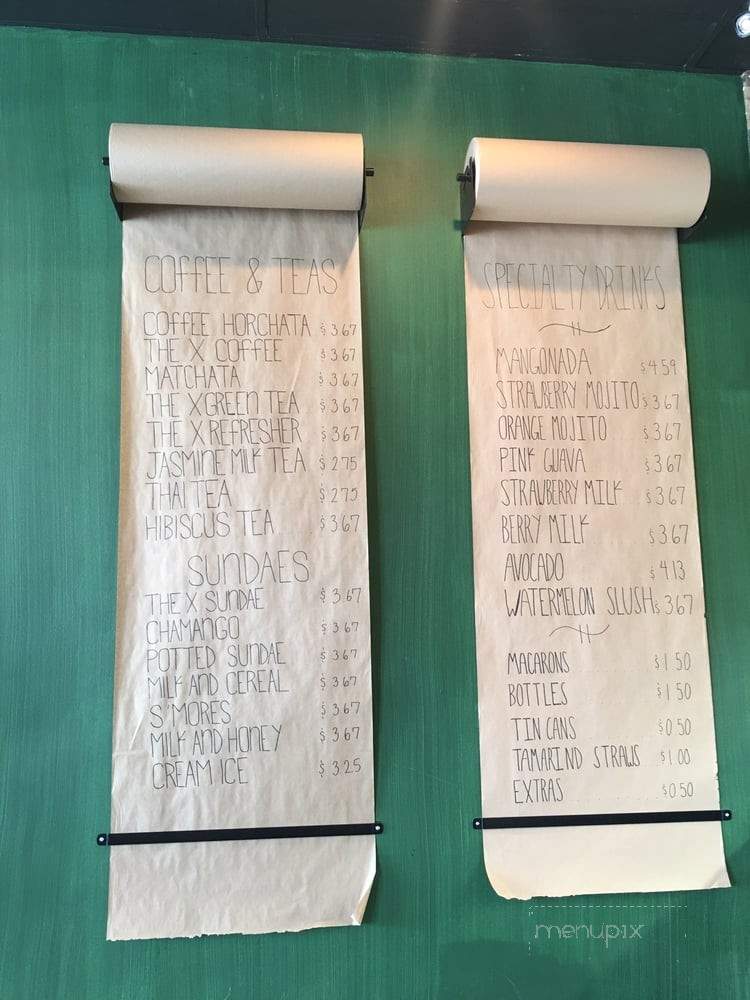 COFFEE & TEAS
COFFEE HORCHATA $3.67
THE X COFFEE $3.67
MATCHATA $3.67
THE X GREEN TEA $3.67
THE X REFRESHER $3.67
JASMINE MILK TEA $2.75
THAI TEA $2.75
HIBISCUS TEA $3.67
SUNDAES
THE X SUNDAE $3.67
CHAMANGO $3.67
POTTED SUNDAE $3.67
MILK AND CEREAL $3.67
S'MORES $3.67
MILK AND HONEY $3.67
CREAM ICE $3.25
SPECIALTY DRINKS
MANGONADA $4.59
STRAWBERRY MOJITO $3.67
ORANGE MOJITO $3.67
PINK GUAVA $3.67
STRAWBERRY MILK $3.67
BERRY MILK $3.67
AVOCADO $4.13
WATERMELON SLUSH $3.67
MACARONS $1.50
BOTTLES $1.50
TIN CANS $0.50
TAMARIND STRAWS $1.00
EXTRAS $0.50
menupix